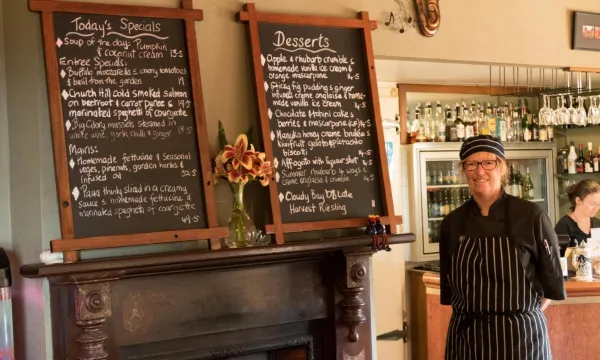 Today's Specials
Soup of the day: Pumpkin
& coconut cream 13.5
Entree Specials:
Buffalo mozzarella & cherry tomatoes
& basil from the garden
Church Hill cold smoked salmon
on beetroot & carrot puree &
marinaked spaghetti of courgette
steamed in
white wine, garlic chilli & ginger
Mains:
Homemade fettucine & Seasonal
veges, pinenuts, garden herbs &
infused oil 32.5
Prawns thinly sliced in a creamy
sauce & homemade fettucine &
marinaked spaghetti of courgette
Desserts
Apple & rhubarb crumble &
homemade vanilla ice cream &
orange mascarpone
Sticky fig pudding & ginger
infused creme anglaise & home-
made vanilla ice cream
Chocolate & tahini cake &
berries & mascarpone
Manuka honey creme brulee &
Kiwifruit gelato & pistachio
biscotti
Affogato with liqueur shot
Summer rhubarb 4 ways &
creme anglaise & crumble
Cloudy Bay Late
Harvest Riesling